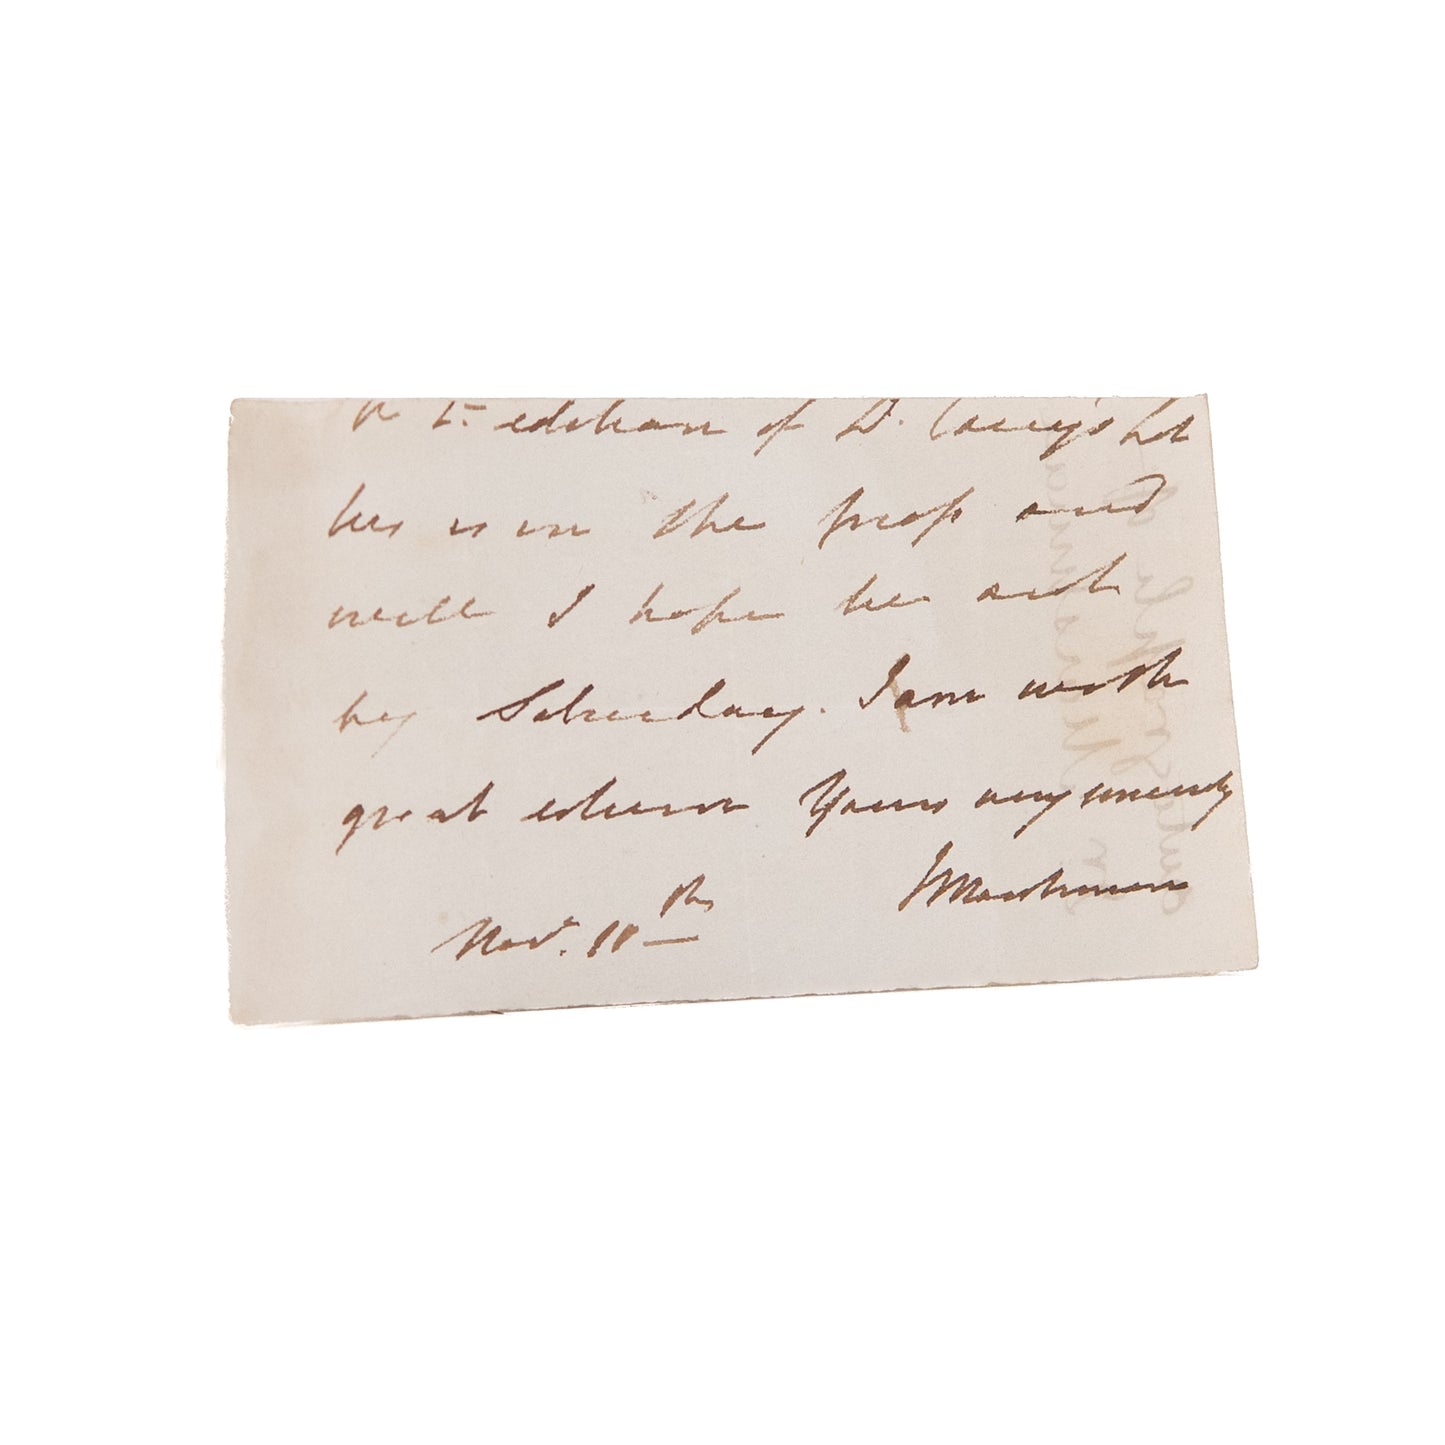 edition of Dr. Carey's Let
ters is in the press and
will I hope be out
by Saturday. I am with
great esteem Yours very sincerely
J Marshman
Nov. 11th